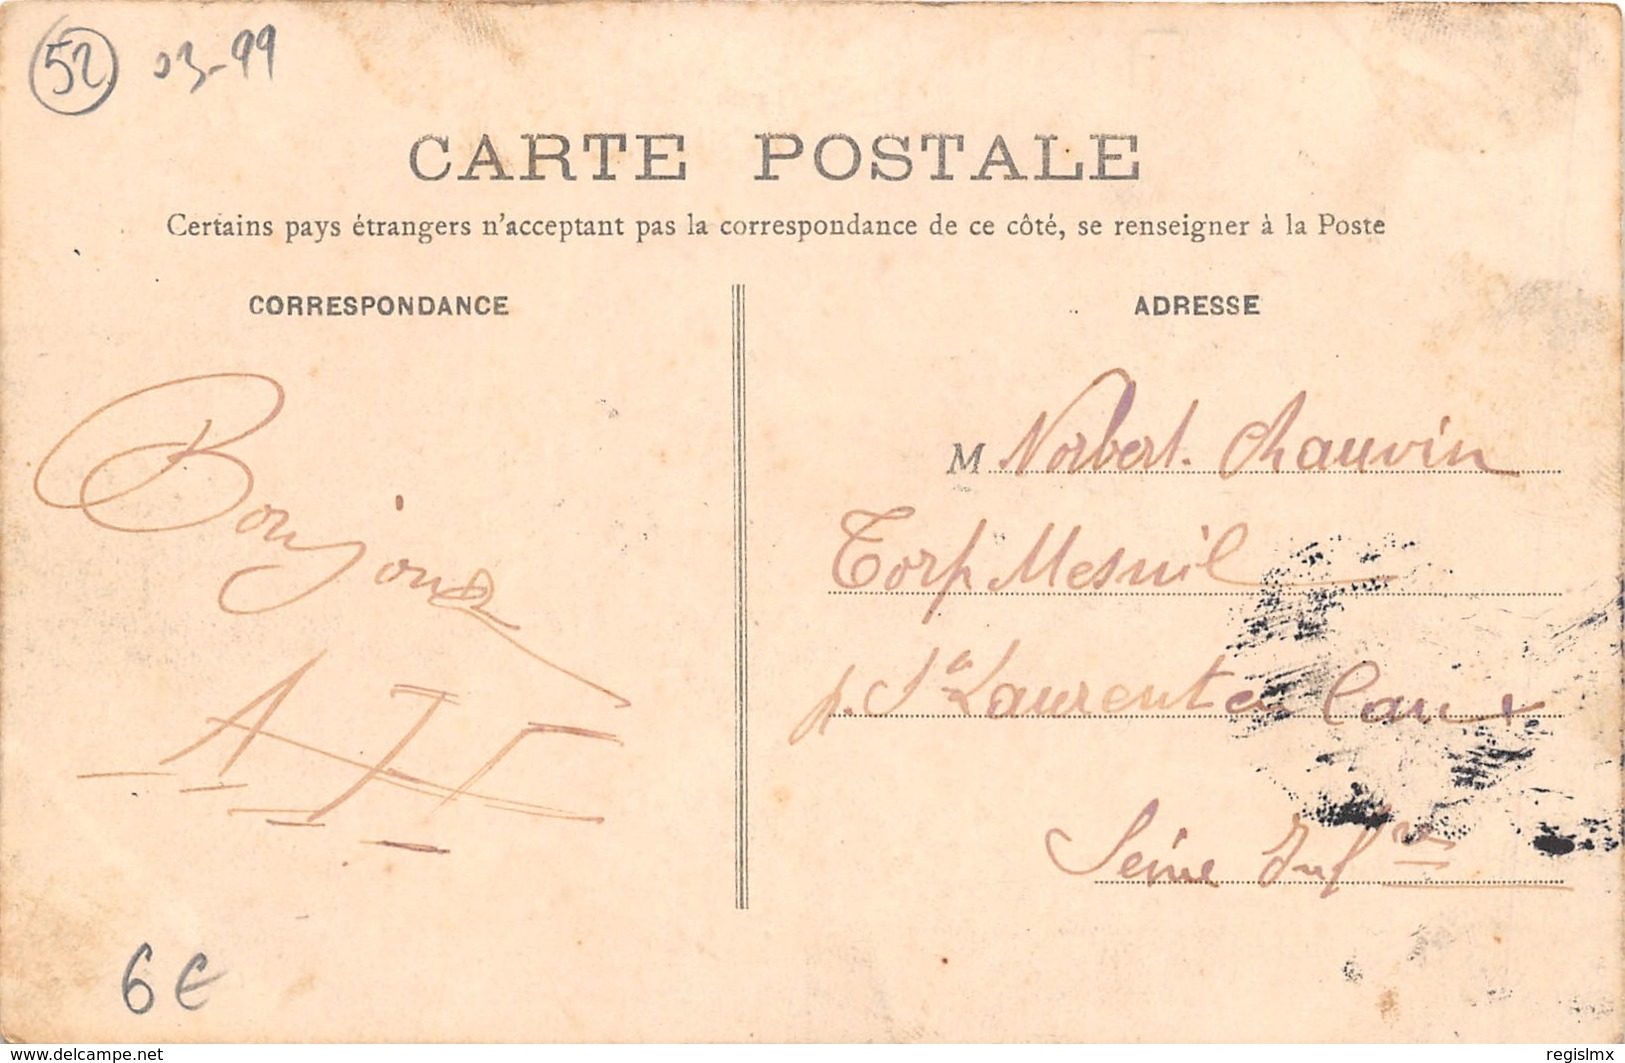 52 03-99
CARTE POSTALE
Certains pays étrangers n'acceptant pas la correspondance de ce côté, se renseigner à la Poste
CORRESPONDANCE
Bonjour
ADRESSE
M Norbert Chauvin
Torp Mesnil
p. St Laurent en Caux
Seine Infre
6€
www.delcampe.net
regislmx